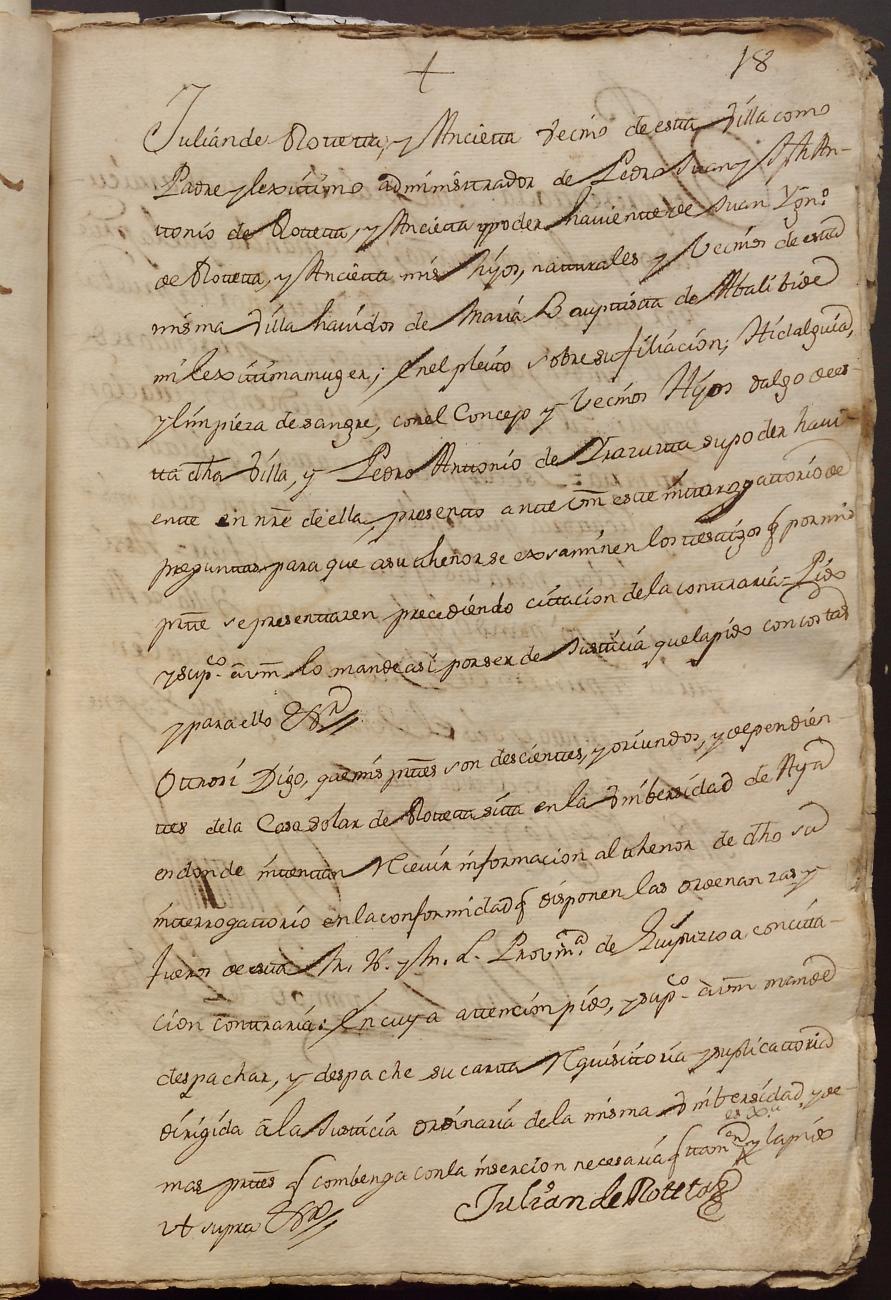 + 18
Julian de Rotetta, y Ancietta Vecino de esta Villa como
Padre y lexittimo administrador de Pedro Juan y Jph An-
ttonio de Rotetta, y Ancietta y poder haviente de Juan Ygn.o
de Rotetta, y Ancietta mis hijos, natturales y Vecinos de esta
misma Villa havidos de Maria Bauptista de Abalibide
mi lexittima muger; En el pleito sobre su filiacion, Hidalguia,
y limpieza de sangre, con el Concejo y Vecinos Hijos dalgo de es-
tta dha Villa, y Pedro Anttonio de Yrazutta su poder havi-
ente en nre de ella, presentto antte Vm este ynterrogattorio de
preguntas para que a su thenor se exsaminen los testigos q por mi
partte se presenttaren precediendo cittacion de la conttraria = Pido
y sup.co a vm lo mande asi por ser de Justicia que la pido con costas
y para ello &a
Ottrosi Digo, que mis parttes son descientes, y oriundos, y dependien-
ttes de la Casa Solar de Rotetta sitta en la Vnibersidad de Aya
en donde intentan Recivir informacion al thenor de dho su
intterrogattorio en la conformidad q disponen las ordenanzas y
fueros de esta M. N. y M. L. Provin.a de Guipuzcoa con citta-
cion conttraria: En cuya attencion pido, y sup.co a vm mande
despachar, y despache su cartta Requisittoria y suplicattoria
dirigida a la Justicia ordinaria de la misma Vnibersidad, y de-
mas parttes q combenga con la insercion necesaria q ttam.n es Xu.a y la pido
vt supra &a Julian de Roteta